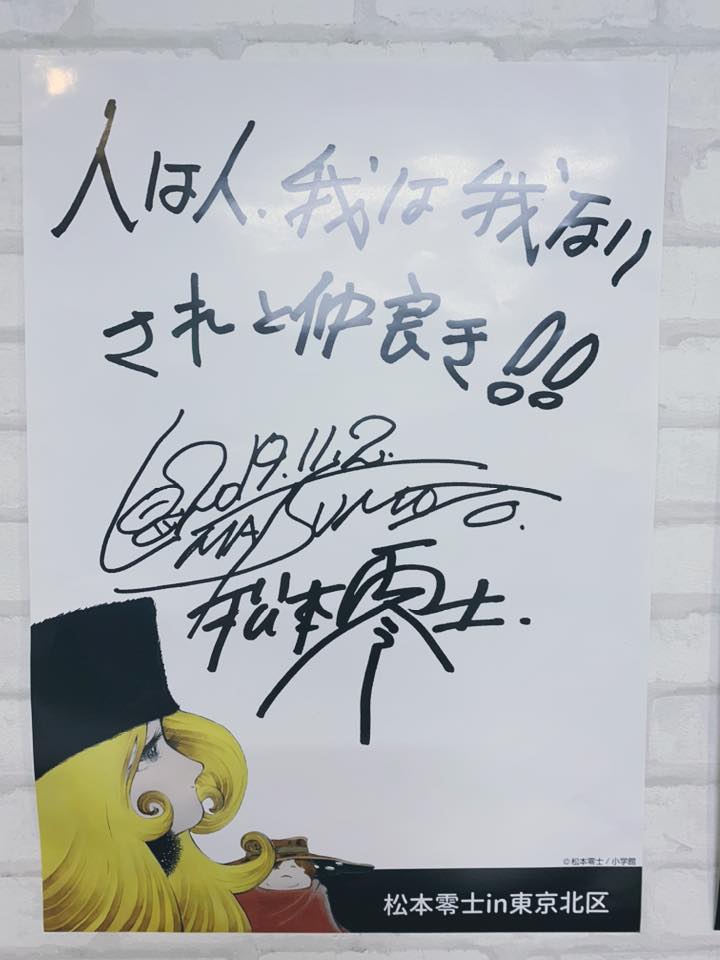 人は人、我は我なり
されど仲良き!!
2019.11.2.
松本零士.
©松本零士/小学館
松本零士in東京北区